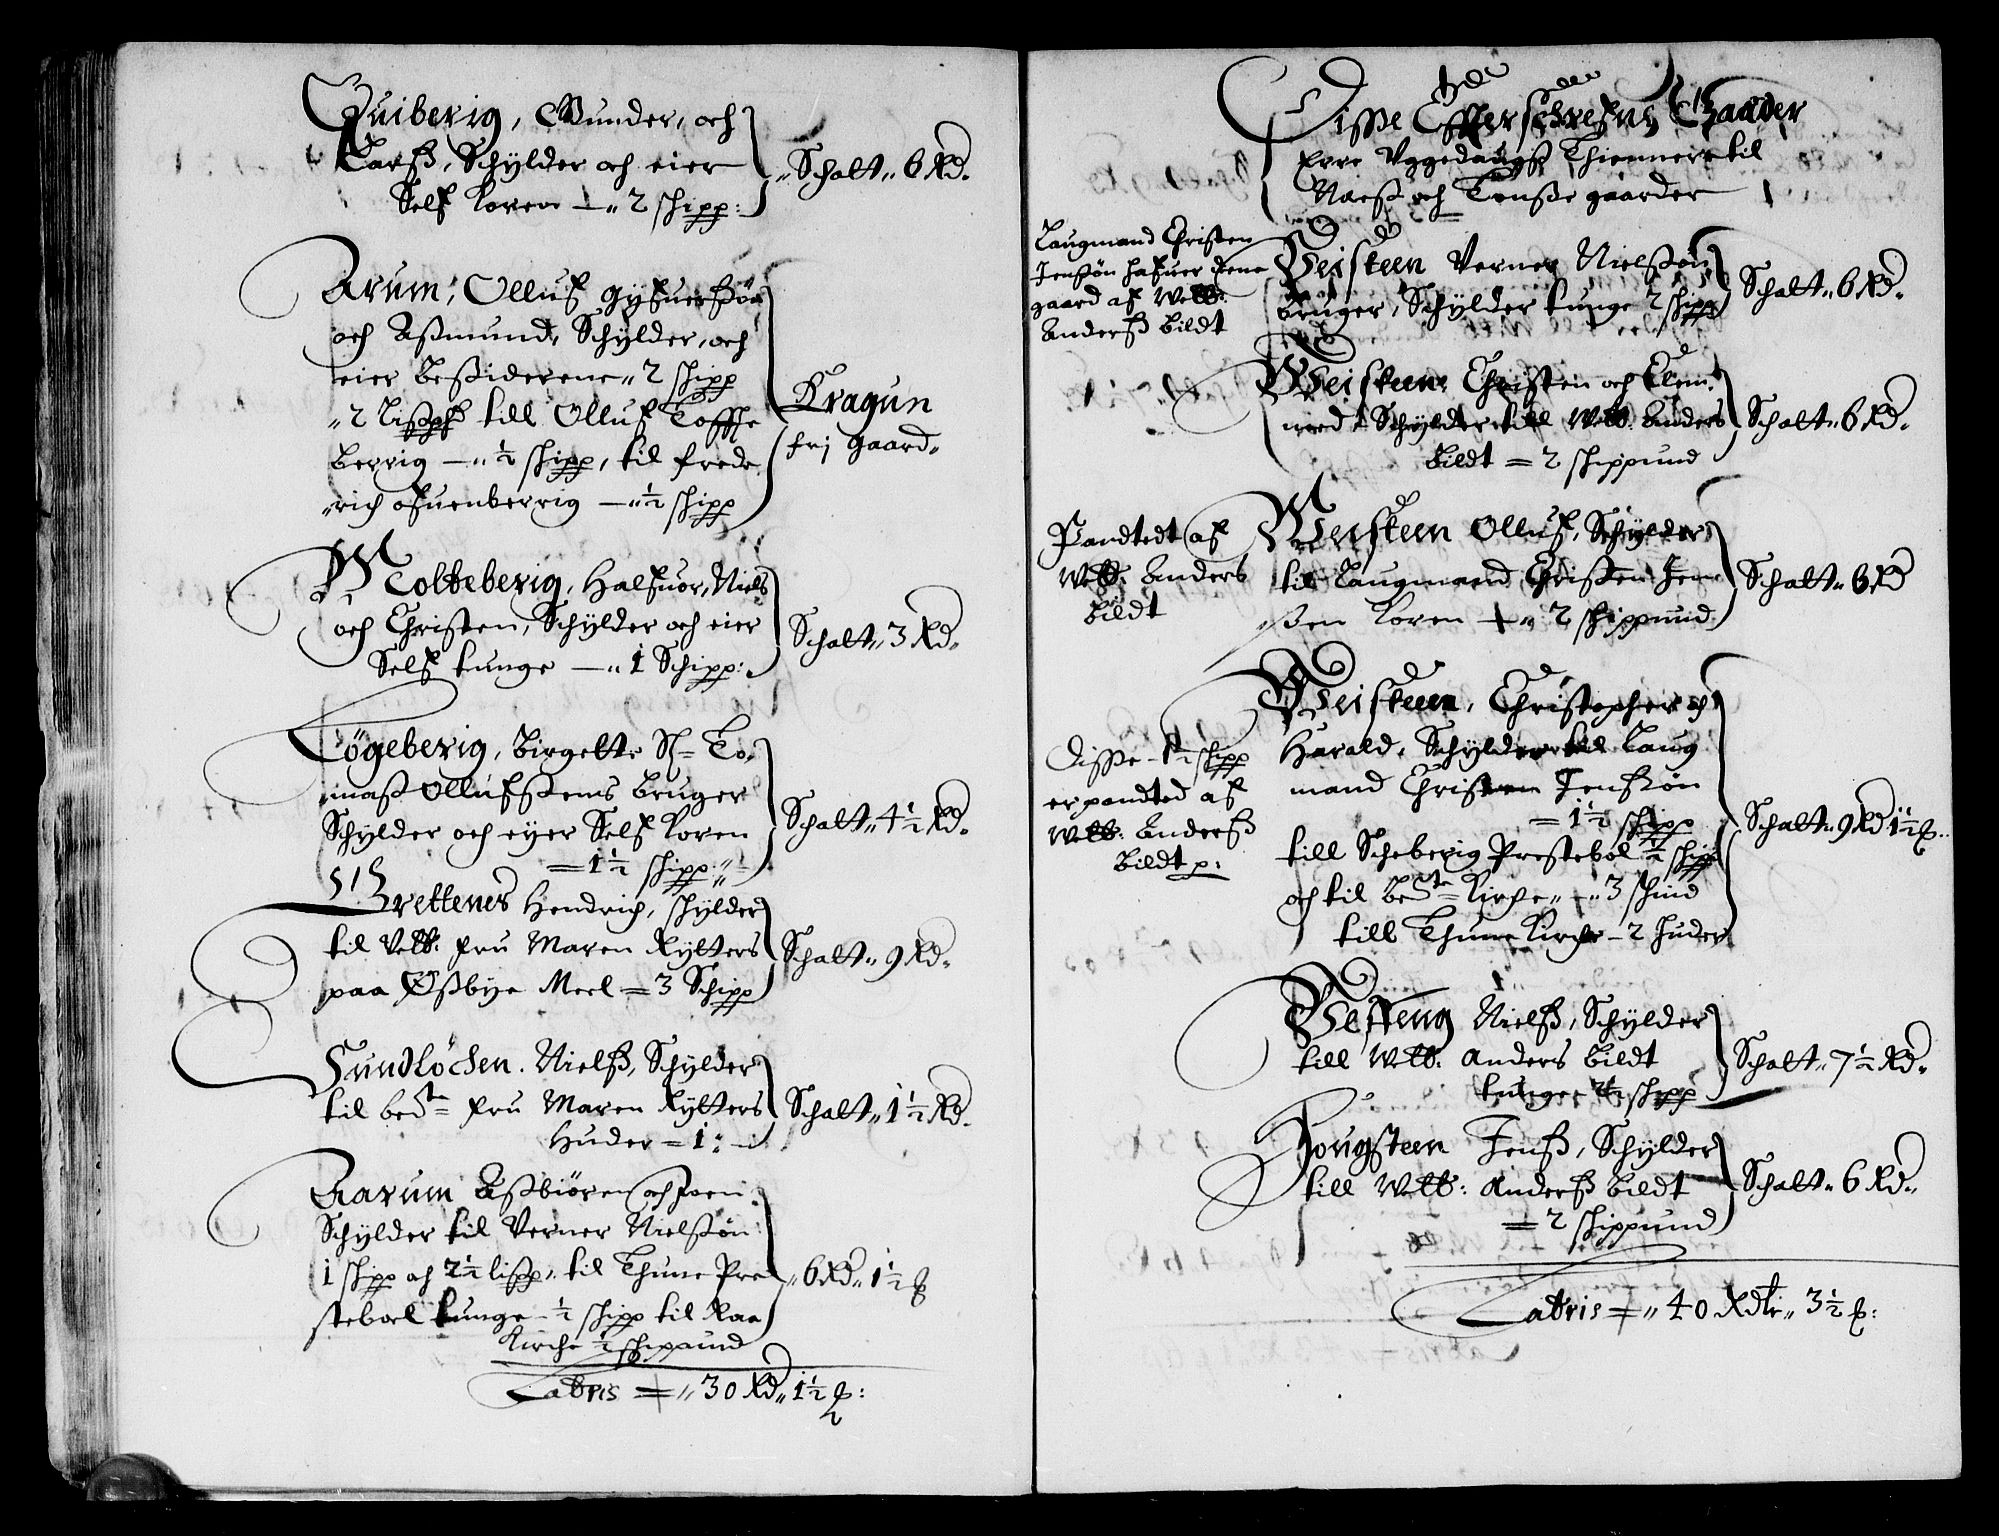 Quiberig, Gunder, och
Larß, Schylder och eier
Self koren — 2 shipp: Schatt 6 Rd.
Arum, Olluf gyfuerßøn
och Aßmund, Schylder, och
eier beßiderene 2 shipp
2 lißpd till Olluf Toffte
berrig — ½ shipp, til frede
rich ofuenberrig — ½ shipp
Kragun
frj gaard.
Molteberig, Halfuor, Niels
och Christen, Schylder och eier
Self tunge — 1 Schipp: Schatt 3 Rd.
Tøgeberig, Birgette Sl= To,
maß Ollufßens bruger
Schylder och eyer Self koren
= 1½ shipp: Schatt 4½ Rd.
Grettenes Hendrich, shylder
til Velb: fru Maren Rytters
paa Østbye Meel = 3 Schipp Schatt 9 Rd.
Sundløchen. Nielß, Schylder
til bete= fru Maren Rytters
Huder = 1: Schatt 1½ Rd.
Aarum Aßbiøren och Joen
Schylder til Verner Nielßøn
1 shipp och 2½ lißp, til Thune Pre
stebol tunge ½ shipp til Raa
Kirche ½ shippund 6 Rd 1½ ß
Latris = 30 Rd 1½ ß:
Disse Effterschrefne Gaarder
Erre Uggedaugs Thiennere til
Naeß och Tenße gaarder
Laugmand Christen
Jenßøn hafuer denne
gaard af Welb:
Anderß Bildt
Veisteen Verner Nielßøn
bruger, Schylder tunge 2 shipp Schatt 6 Rd.
Weisteen Christen och Clem,
med Schylder till Welb. Anders
Bildt = 2 shippund Schatt 6 Rd.
Pandtedt af
Welb. Anders
Bildt
Weisteen Olluf, Schylder
til Laugmand Christen Jen
ßen koren — 2 shippund Schatt 6 Rd
Disse 1½ shipp
er pandted af
Welb: Anderß
Bildt p:
Veisteen, Christopher och
Harald, Schylder till Laug
mand Christen Jenßøn
= 1½ shipp
till Scheberig Prestebol ½ shipp
och til bete= Kirche 3 skind
till Thune Kirche — 2 huder Schatt 9 Rd 1½ ß.
Vesteng Nielß, Schylder
till Welb. Anders Bildt
tunge 2½ shipp Schatt 7½ Rd.
Hougsteen Jenß, Schylder
till Welb: Anderß Bildt
= 2 shippund Schatt 6 Rd.
Latris = 40 Rdlr 3½ ß: